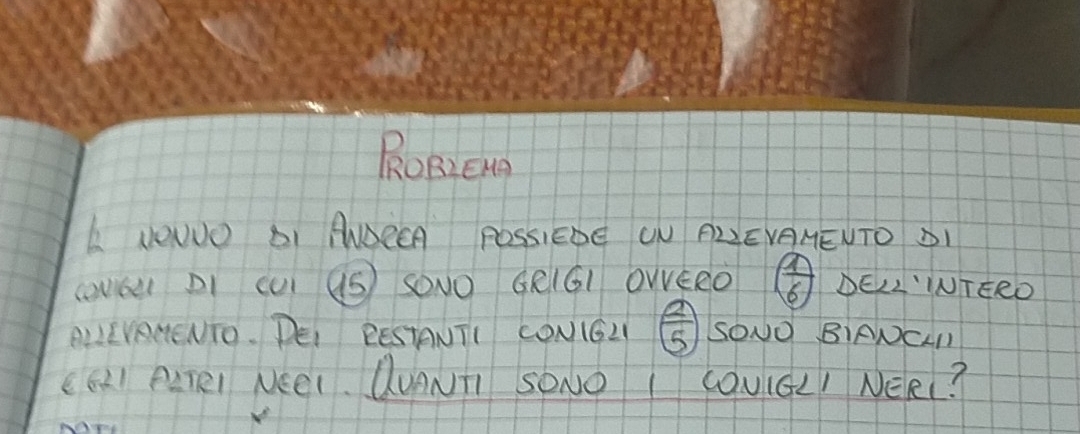 PROBLEMA
IL NONNO DI ANDREA POSSIEDE UN ALLEVAMENTO DI
CONIGLI DI CUI 15 SONO GRIGI OVVERO 1/6 DELL'INTERO
ALLEVAMENTO. DEI RESTANTI CONIGLI 2/5 SONO BIANCHI
E GLI ALTRI NERI. QUANTI SONO I CONIGLI NERI?
DATI